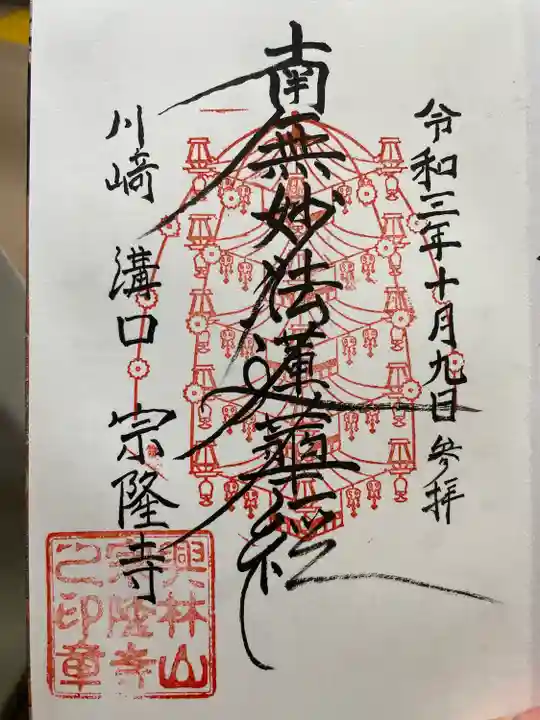 令和三年十月九日 参拝
南無妙法蓮華経
川崎 溝口 宗隆寺
興林山
宗隆寺
之印章